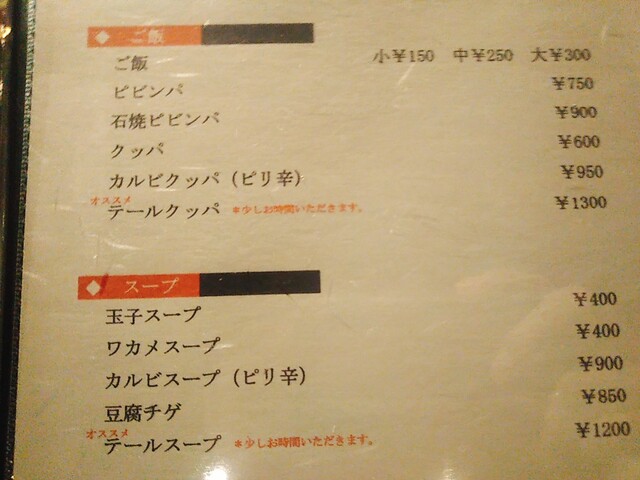 ◆ ご飯
ご飯 小¥150 中¥250 大¥300
ピビンパ ¥750
石焼ピビンパ ¥900
クッパ ¥600
カルビクッパ（ピリ辛） ¥950
オススメ
テールクッパ ＊少しお時間いただきます。 ¥1300
◆ スープ
玉子スープ ¥400
ワカメスープ ¥400
カルビスープ（ピリ辛） ¥900
豆腐チゲ ¥850
オススメ
テールスープ ＊少しお時間いただきます。 ¥1200